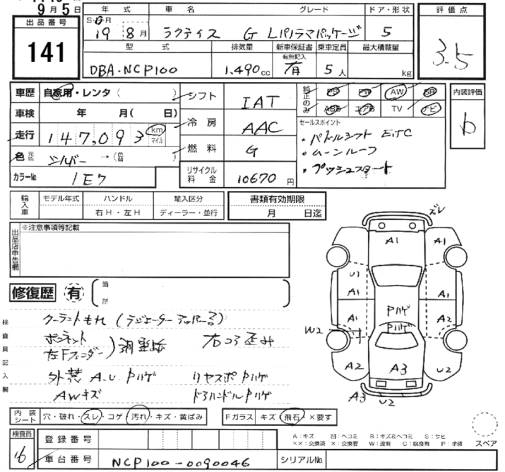 9月5日
出品番号
141
年式 車名 グレード ドア・形状
19 8月 ラクティス G Lパノラマパッケージ 5
型式 排気量 新車保証書 乗車定員 最大積載量
有無記入
DBA-NCP100 1,490cc 有 5人 kg
評価点
3.5
内装評価
b
車歴 自家用・レンタ( )
車検 年 月( 日)
走行 147,093 km マイル
色 シルバー →( )
カラーNo 1E7
シフト IAT
冷房 AAC
燃料 G
リサイクル料金 10670円
AW
TV ナビ
セールスポイント
・パドルシフト ETC
・ムーンルーフ
・プッシュスタート
輸入車 モデル年式 ハンドル 輸入区分
右H・左H ディーラー・並行
書類有効期限
月 日迄
※注意事項等記載
出品店申告欄
修復歴 有
箇所
検査員記入欄
クーラントもれ(ラジエーターアッパー部)
ボンネット
左Fフェンダー
調整跡 右コラ歪み
外装 A.U ハゲ リヤスポ ハゲ
AWキズ ドアハンドル ハゲ
ズレ
A1
U1 A1
A1 A1
ハゲ
ハゲ
W2
A2 A3 A2 U2
A3 U2
内装シート 穴・破れ・スレ・コゲ・汚れ・キズ・黄ばみ
Fガラス キズ・飛石・×要す
スペア
検査員
登録番号
車台番号 NCP100-0090046 シリアルNo